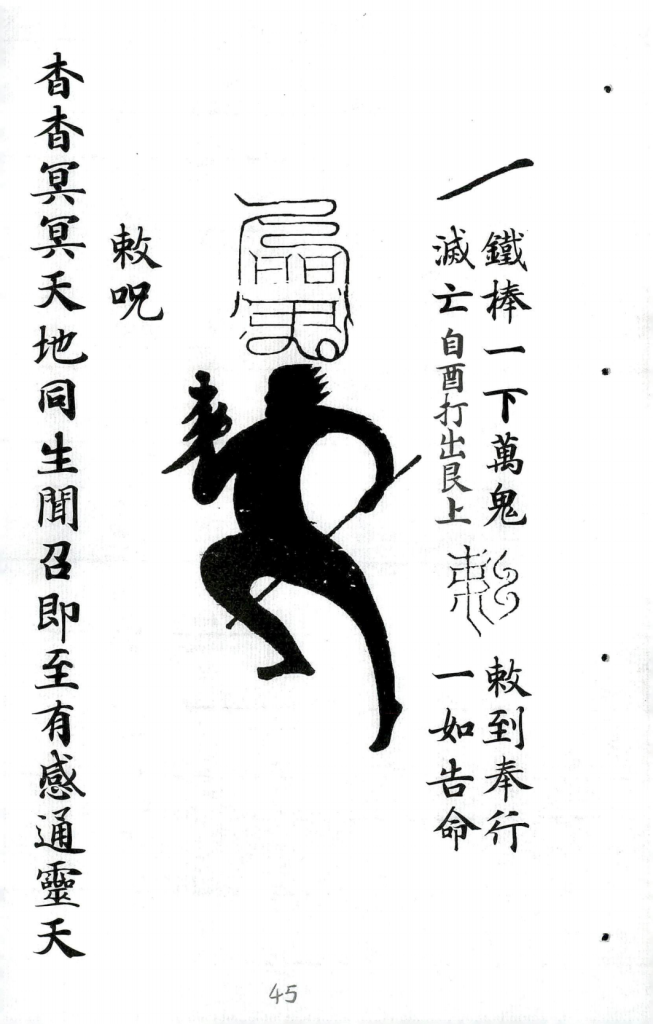 一
鐵棒一下萬鬼
滅亡自酉打出艮上
敕
敕到奉行
一如告命
敕呪
杳杳冥冥天地同生聞召即至有感通靈天
45